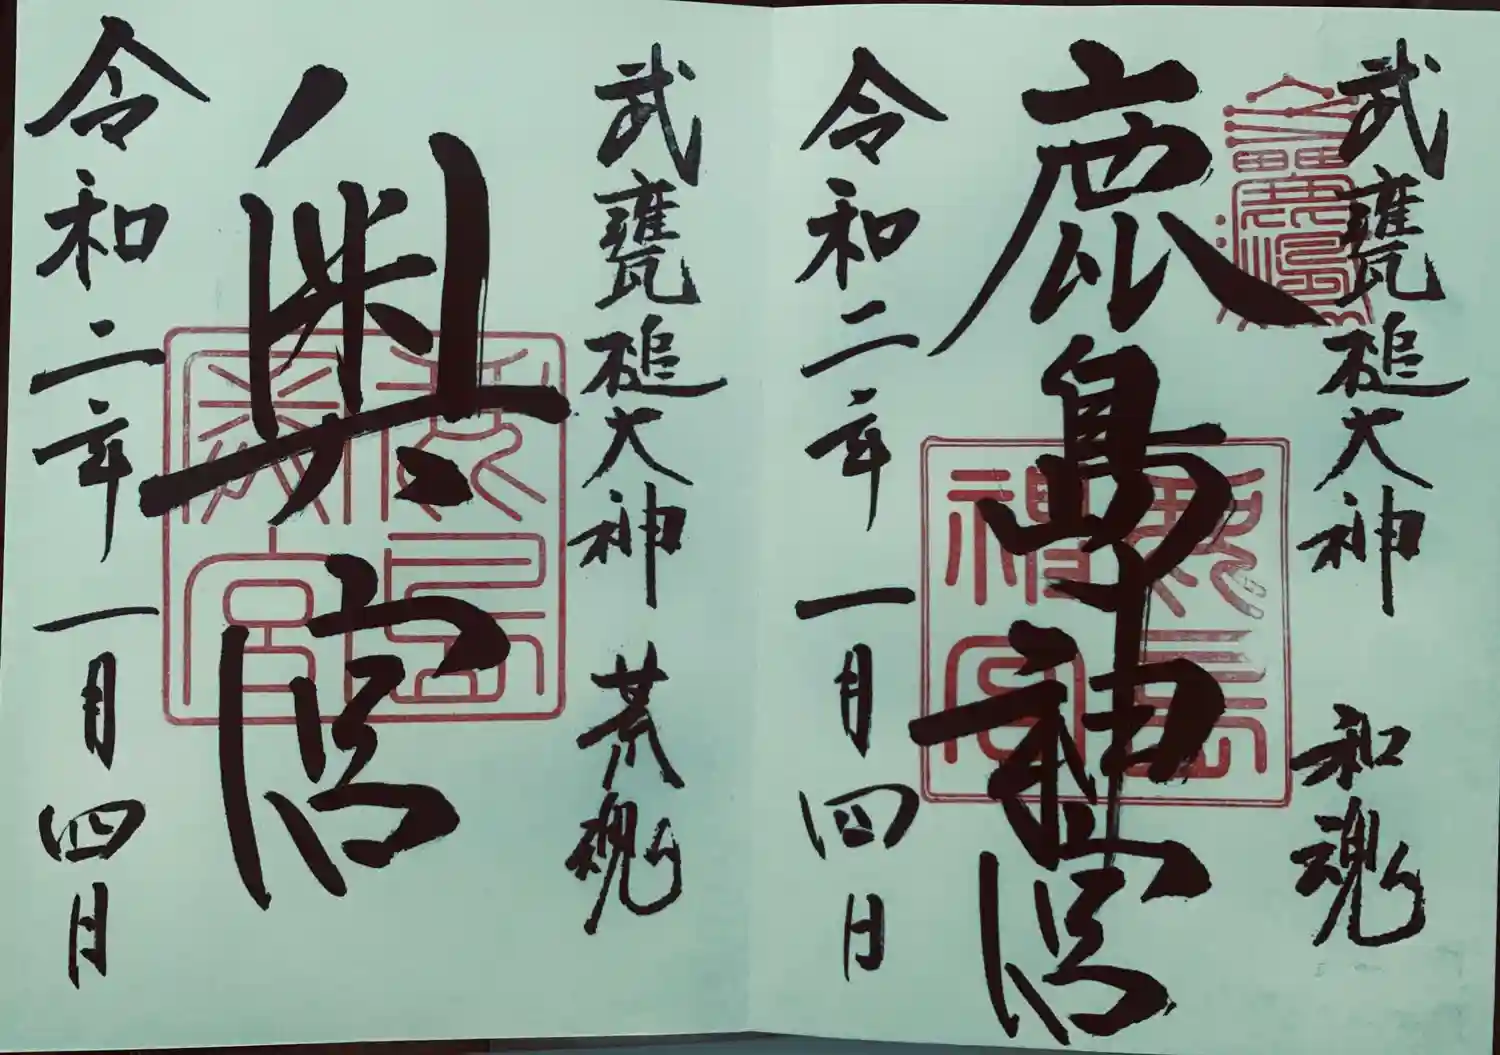 武甕槌大神 和魂
鹿島神宮
令和二年一月四日
武甕槌大神 荒魂
奥宮
令和二年一月四日
鹿島
神宮